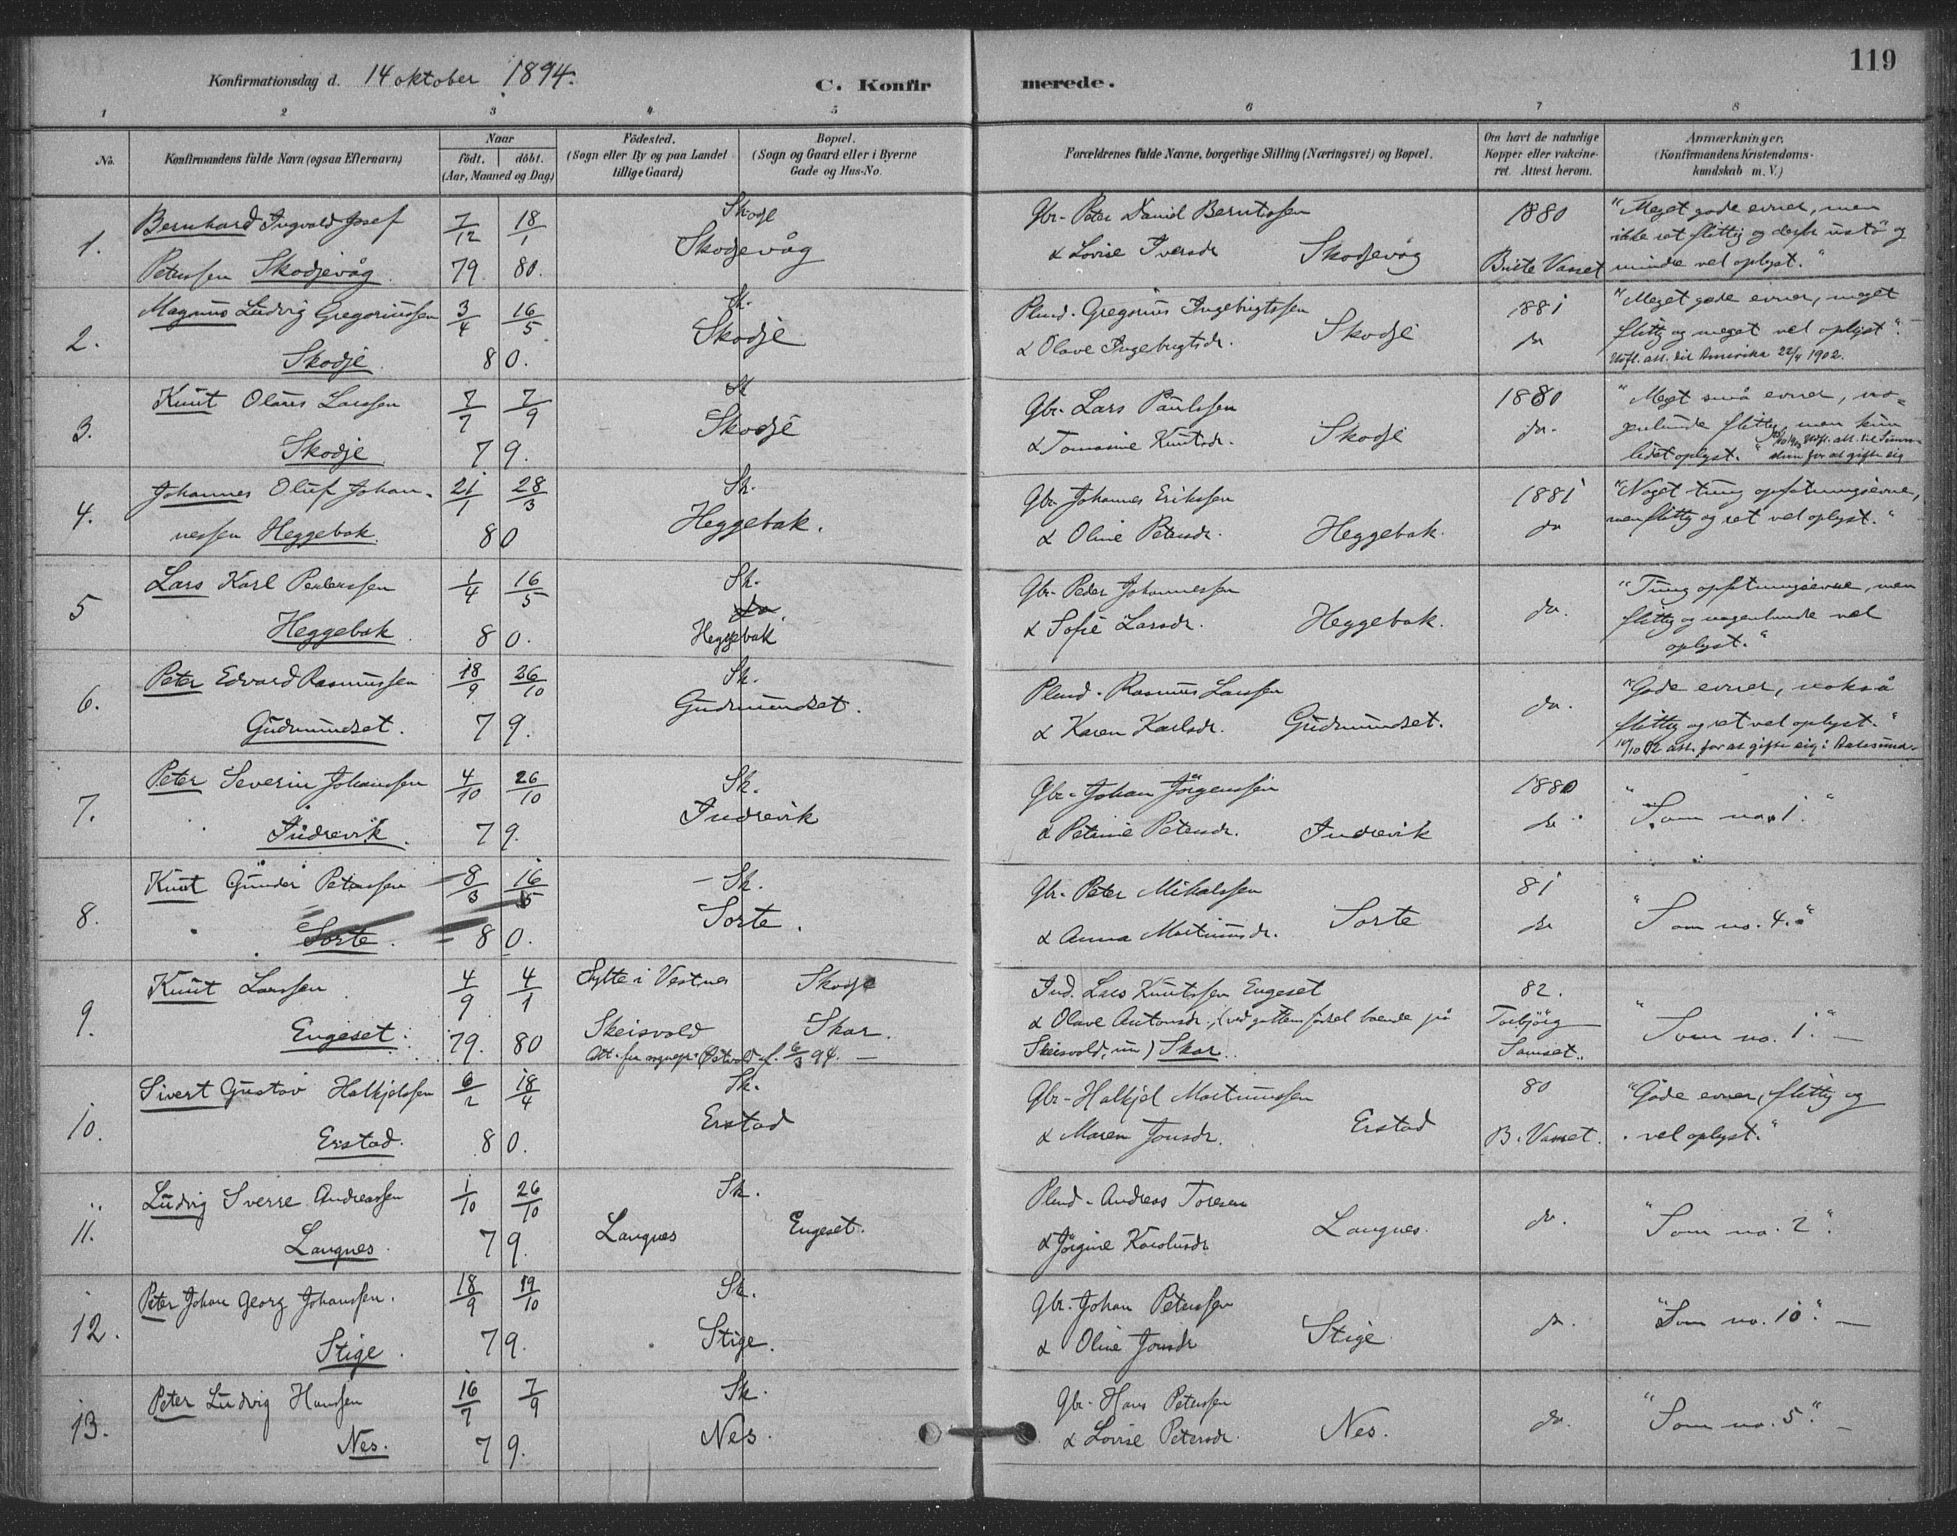 119
Konfirmationsdag d. 14 oktober 1894.
C. Konfirmerede.
1 2 3 4 5 6 7 8
No.
Konfirmandens fulde Navn (ogsaa Efternavn)
Naar
födt. | döbt.
(Aar, Maaned og Dag)
Födested.
(Sogn eller By og paa Landet
tillige Gaard)
Bopæl.
(Sogn og Gaard eller i Byerne
Gade og Hus-No.
Forældrenes fulde Navne, borgerlige Stilling (Næringsvei) og Bopæl.
Om havt de naturlige
Kopper eller vakcine-
ret. Attest herom.
Anmærkninger.
(Konfirmandens Kristendoms-
kundskab m. V.)
1. Bernhard Ingvald Josef 7/12 18/1 Skodje Gbr. Peter David Berntssen 1880 "Meget gode evner, men
ikke ret flittig og derfor ustö og
Peterssen Skodjevåg 79. 80. Skodjevåg & Lovise Iversdr. Skodjevåg Brite Vasset mindre vel oplyst."
2. Magnus Ludvig Gregoriussen 3/4 16/5 Sk. Plmd. Gregorius Ingebrigtssen 1881 "Meget gode evner, meget
Skodje 80. Skodje & Olave Ingebrigtsdr. Skodje do flittig og meget vel oplyst."
Udfl. att. til Amerika 22/4 1902.
3. Knut Olaus Larssen 7/7 7/9 Sk Gbr. Lars Paulssen 1880 "Meget små evner, no-
Skodje 79. Skodje & Tomasine Knutsdr. Skodje do. genlunde flittig, men kun
lidet oplyst." for at gifte sig
4. Johannes Oluf Johan- 21/1 28/3 Sk. Gbr. Johannes Erikssen 1881 "Noget tung opfatningsevne,
nessen Heggebak. 80 Heggebak. & Oline Petersdr. Heggebak. do men flittig og ret vel oplyst."
5 Lars Karl Pederssen 1/4 16/5 Sk. Gbr. Peder Johannessen do. "Tung opfatningsevne, men
Heggebak. 80. do. Heggebak & Sofie Larsdr. Heggebak. flittig og nogenlunde vel
oplyst."
6. Peter Edvard Rasmussen 18/9 26/10 Sk. Plmd. Rasmus Larssen do. "Gode evner, nokså
Gudmundset. 79. Gudmundset. & Karen Karlsdr. Gudmundset. flittig og ret vel oplyst."
10/10 02 att. for at gifte sig i Aalesund.
7. Peter Severin Johanssen 4/10 26/10 Sk. Gbr. Johan Jörgenssen 1880 "Som no. 1."
Indrevik. 79. Indrevik & Petrine Petersdr. Indrevik do
8. Knut Gunder Peterssen 8/3 16/5 Sk. Gbr. Peter Mikalssen 81
Sorte. 80. Sorte. & Anna Martinusdr. Sorte do "Som no. 4."
9. Knut Larssen 4/9 4/1 Sylte i Vestnes Skodje Ind. Lars Knutssen Engeset 82.
Engeset. 79. 80 Skeisvold Skar. & Olave Antonsdr., (ved guttens fødsel boende på Torbjörg "Som no. 1."
Att. fra sognepr. Østvold af 6/3 94. Skeisvold, nu) Skar. Samset.
10. Sivert Gustav Halkjelssen 6/2 18/4 Sk. Gbr. Halkjel Martinussen 80 "Gode evner, flittig og
Erstad. 80. Erstad & Maren Jonsdr. Erstad B. Vasset. vel oplyst."
11. Ludvig Sverre Andreassen 1/10 26/10 Sk. Plmd. Andreas Toresen do.
Langnes. 79. Langnes Engeset. & Jörgine Karolusdr. Langnes. "Som no. 2."
12. Peter Johan Georg Johanssen. 18/9 19/10 Sk. Gbr. Johan Peterssen do. "Som no. 10."
Stige. 79. Stige. & Oline Jonsdr. Stige.
13. Peter Ludvig Hanssen 16/7 7/9 Sk. Gbr. Hans Peterssen do. "Som no. 5."
Nes. 79. Nes. & Lovise Petersdr. Nes.